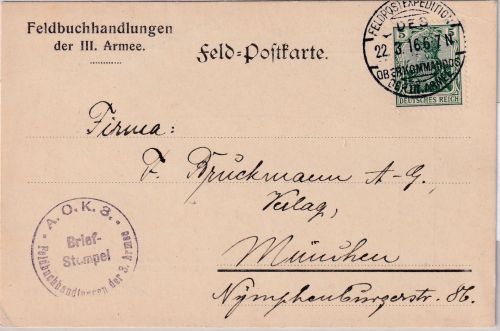 Feldbuchhandlungen
der III. Armee.
Feld-Postkarte.
FELDPOSTEXPEDITION
DES
22.3.16.6-7N.
OBERKOMMANDOS
DER III. ARMEE
DEUTSCHES REICH
Firma:
F. Bruckmann A-G.,
Verlag,
München
Nymphenburgerstr. 86.
A.O.K.3.
Brief-
Stempel
Feldbuchhandlungen der 3. Armee